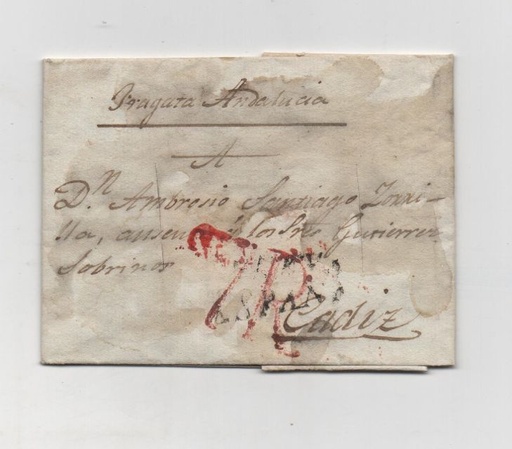 Fragata Andalucia
A
D.n Ambrosio Santiago Zorri-
lla, ausen los Sres Gutierrez
Sobrinos
ESPAÑA
7R
Cadiz